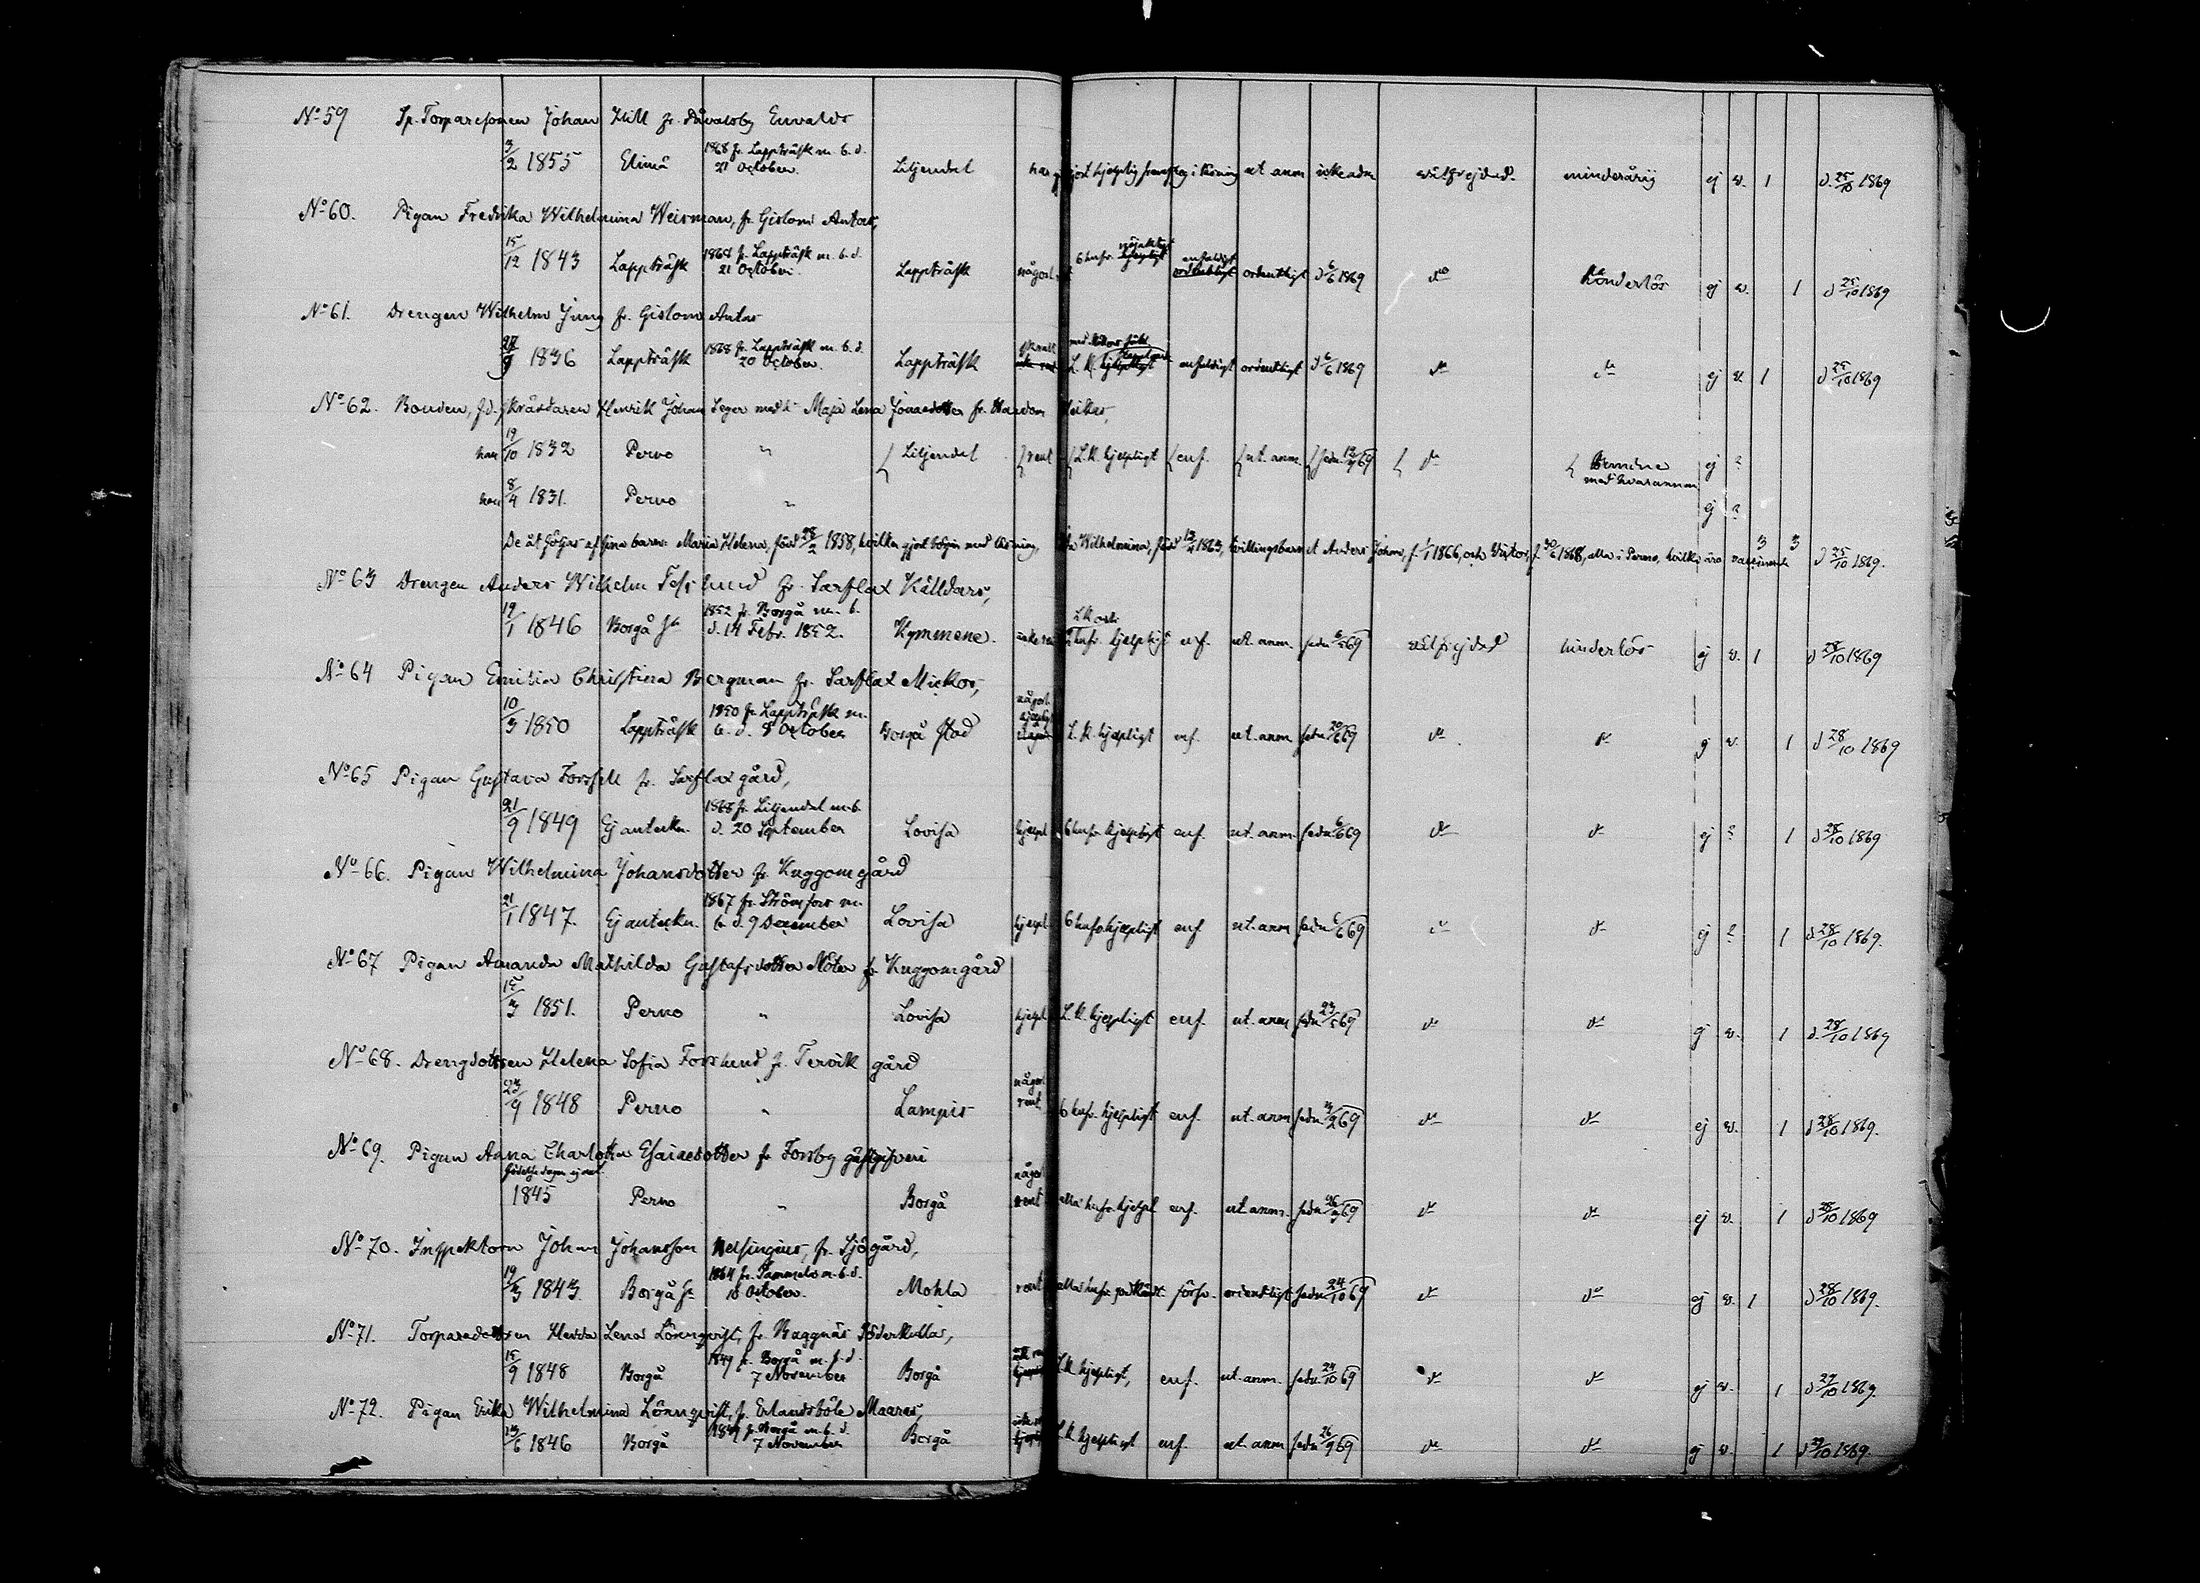 No 59 Sp. Torparesonen Johan Hill fr. Dåvalsby Envalds
3/2 1855 Elimä 1868 fr. Lappträsk m. b. d. 21 October. Liljendal ut. anm. icke adm. välfrejdad. minderårig ej v. 1 d. 25/10 1869
No 60. Pigan Fredrika Wilhelmina Weisman, fr. Gislom Antas,
15/12 1843 Lappträsk 1868 fr. Lappträsk m. b. d. 21 October. Lappträsk någorl. 6 hufv. nöjaktigt enfaldigt ordentligt d. 6/6 1869 do hinderlös ej v. 1 d. 25/10 1869
No 61. Drengen Wilhelm Jung fr. Gislom Antas
1836 Lappträsk 1868 fr. Lappträsk m. b. d. 20 October. Lappträsk L. K. enfaldigt ordentligt d. 6/6 1869 do do ej v. 1 d. 25/10 1869
No 62. Bonden, f.d. skräddaren Henrik Johan Seger med h. Maja Lena Jonasdotter fr. Hardom
han 19/10 1832 Perno " Liljendal rent L. K. hjelpligt enf. ut. anm. sedn. 69 do med hvarannan ej ?
hon 8/4 1831. Perno " ej ?
De åtföljas af sina barn: Maria Helena, född 28/2 1858, hvilken gjort början med läsning, Wilhelmina, född 1863, tvillingsbarnet Anders Johan, f. 1/1 1866, och Victor, f. 1868, alla i Perno, hvilka äro vaccinerade 3 3 d. 25/10 1869.
No 63 Drengen Anders Wilhelm fr. Sarflax Källdars,
19/1 1846 Borgå sn 1852 fr. Borgå m. b. d. 14 Febr. 1852. Kymmene. hufv. hjelpligt enf. ut. anm. sedn. 69 välfrejdad hinderlös ej v. 1 d. 28/10 1869
No 64 Pigan Emilia Christina Bergman fr. Sarflax Mickos,
10/3 1850 Lappträsk 1850 fr. Lappträsk m. b. d. 8 October Borgå stad någorl. L. K. hjelpligt enf. ut. anm. sedn. 20/6 69 do do ej v. 1 d. 28/10 1869
No 65 Pigan Gustava Forssell fr. Sarflax gård,
21/9 1849 Ej anteckn. 1868 fr. Liljendal m. b. d. 20 September Lovisa hjelpl. 6 hufv. hjelpligt enf. ut. anm. sedn. 6/6 69 do do ej ? 1 d. 28/10 1869
No 66. Pigan Wilhelmina Johansdotter fr. Kuggom gård
21/1 1847. Ej anteckn. 1867 fr. Strömfors m. b. d. 9 December Lovisa hjelpl. 6 hufv. hjelpligt enf. ut. anm. sedn. 6/6 69 do do ej ? 1 d. 28/10 1869.
No 67 Pigan Amanda Mathilda Gustafsdotter fr. Kuggomgård
15/3 1851. Perno " Lovisa hjelpl. L. K. hjelpligt enf. ut. anm. sedn. 23/5 69 do do ej v. 1 d. 28/10 1869
No 68. Drengdottren Helena Sofia Forslund fr. Tervik gård
23/9 1848 Perno " Lampis någorl. rent 6 hufv. hjelpligt enf. ut. anm. sedn. 69 do do ej v. 1 d. 28/10 1869.
No 69. Pigan Anna Charlotta Esaiaedotter fr. Forsby gästgifveri
födelsedagen ej ant. 1845 Perno " Borgå någorl. rent alla hufv. hjelpl. enf. ut. anm. sedn. 69 do do ej v. 1 d. 28/10 1869
No 70. Inspektorn Johan Johansson Helsingius, fr. Sjögård,
19/3 1843. Borgå sn 1864 fr. Tammela m. b. d. 18 October. Mohla rent alla hufv. godkändt försv. ordentligt sedn. 24/10 69 do do ej v. 1 d. 28/10 1869.
No 71. Torparedottren Hedda Lena Lönnqvist, fr. Baggnäs Söderkullas,
15/9 1848 Borgå 1849 fr. Borgå m. b. d. 7 November Borgå L. K. hjelpligt, enf. ut. anm. sedn. 24/10 69 do do ej v. 1 d. 29/10 1869
No 72. Pigan Erika Wilhelmina Lönnqvist, fr. Erlandsböle Maaras,
1846 Borgå 1849 fr. Borgå m. b. d. 7 November Borgå L. K. hjelpligt enf. ut. anm. sedn. 26/9 69 do do ej v. 1 d. 29/10 1869.